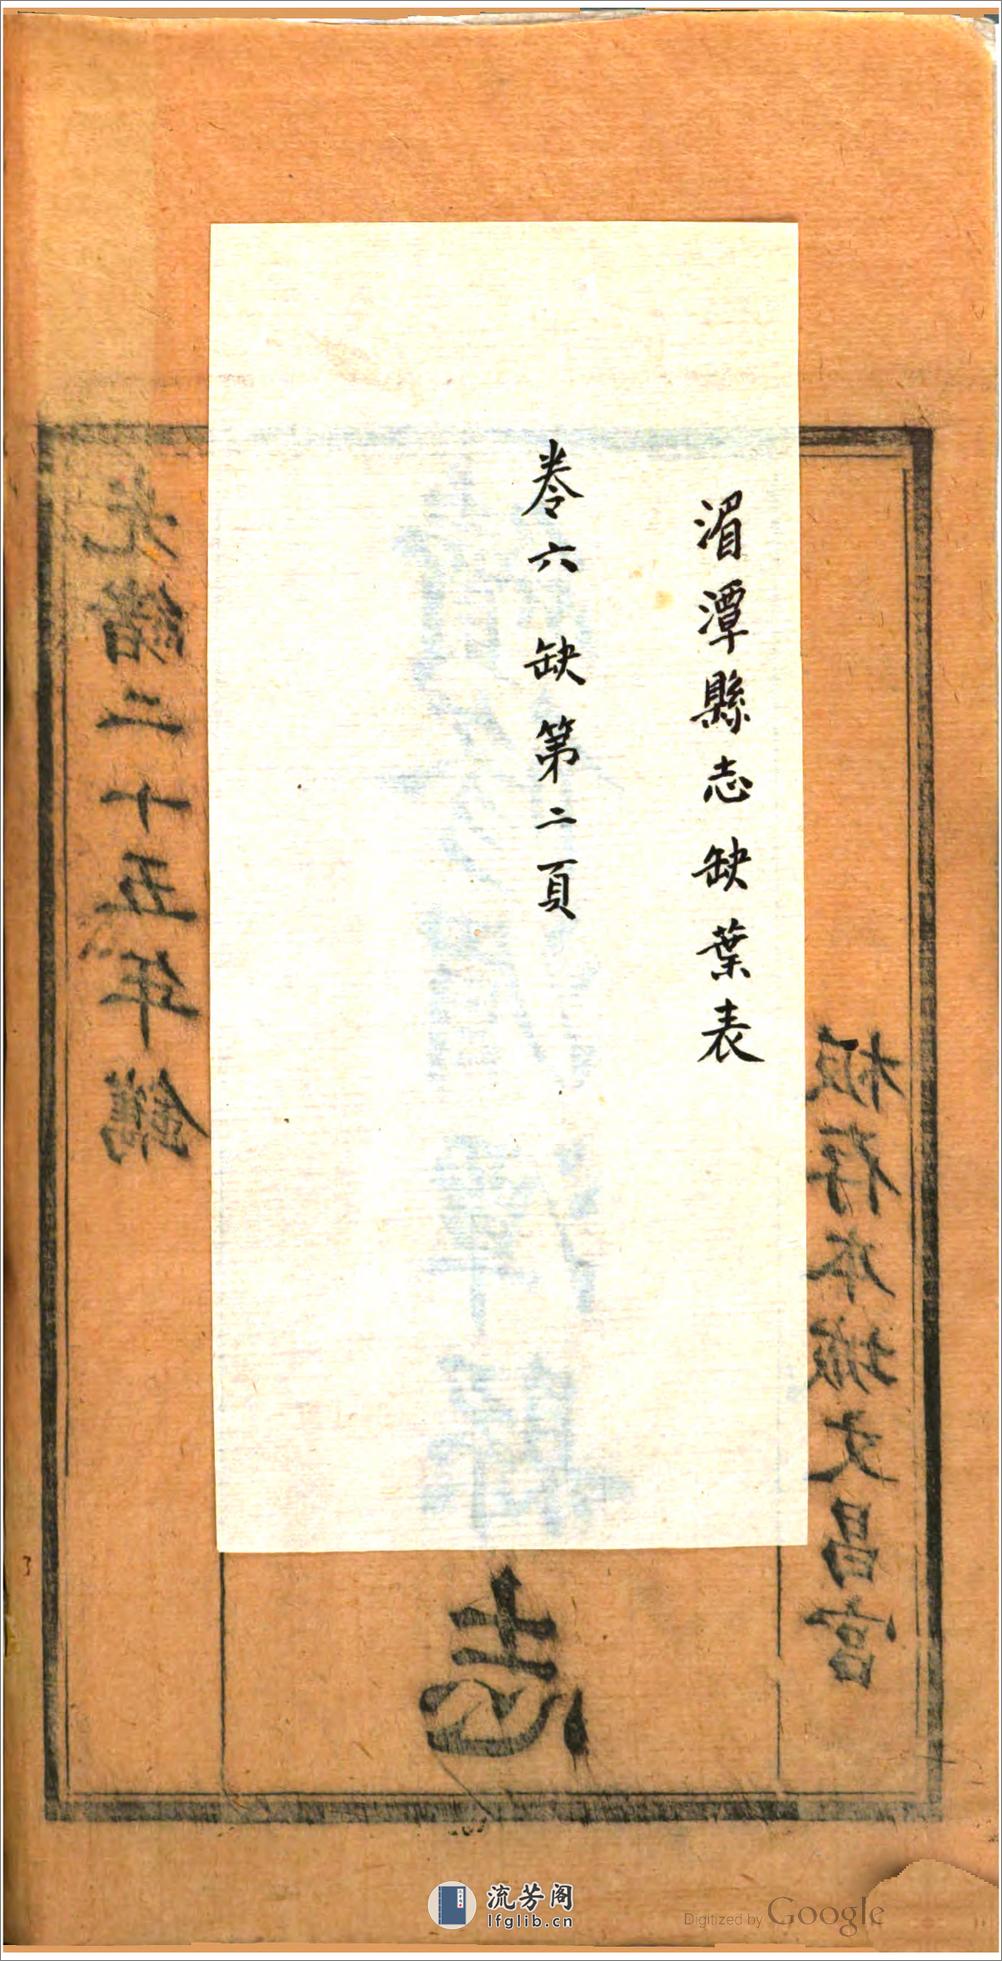 湄潭縣志缺葉表
卷六 缺第二頁
板存本城文昌宮
志
光緒二十五年鐫
流芳阁
lfglib.cn
Digitized by Google